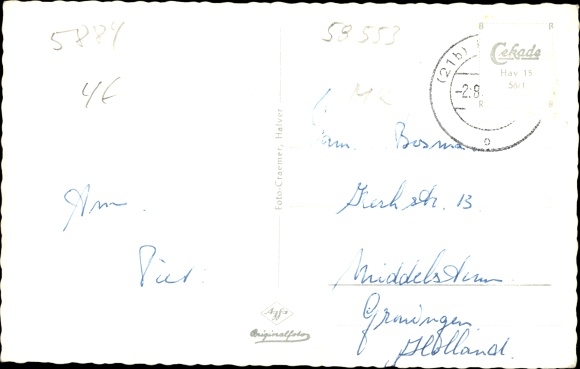 5884
58553
4E
B R
Cekade
Hav 15
56/1
R R
(21b)
-2.8.
Fam. Bosma
Kerkstr. 13.
Middelstum
Groningen
Holland.
Am.
Piet.
Foto-Craemer, Halver
Agfa
Originalfoto